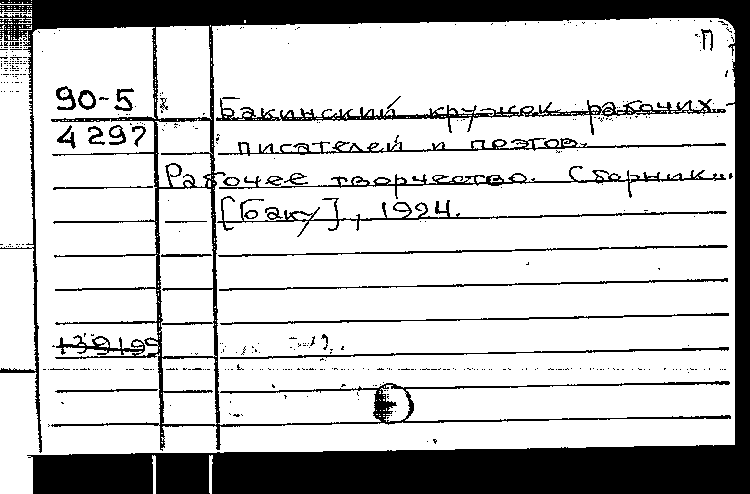 П
90-5 Бакинский кружок рабочих
4297 писателей и поэтов.
Рабочее творчество. Сборник...
[Баку], 1924.
139199